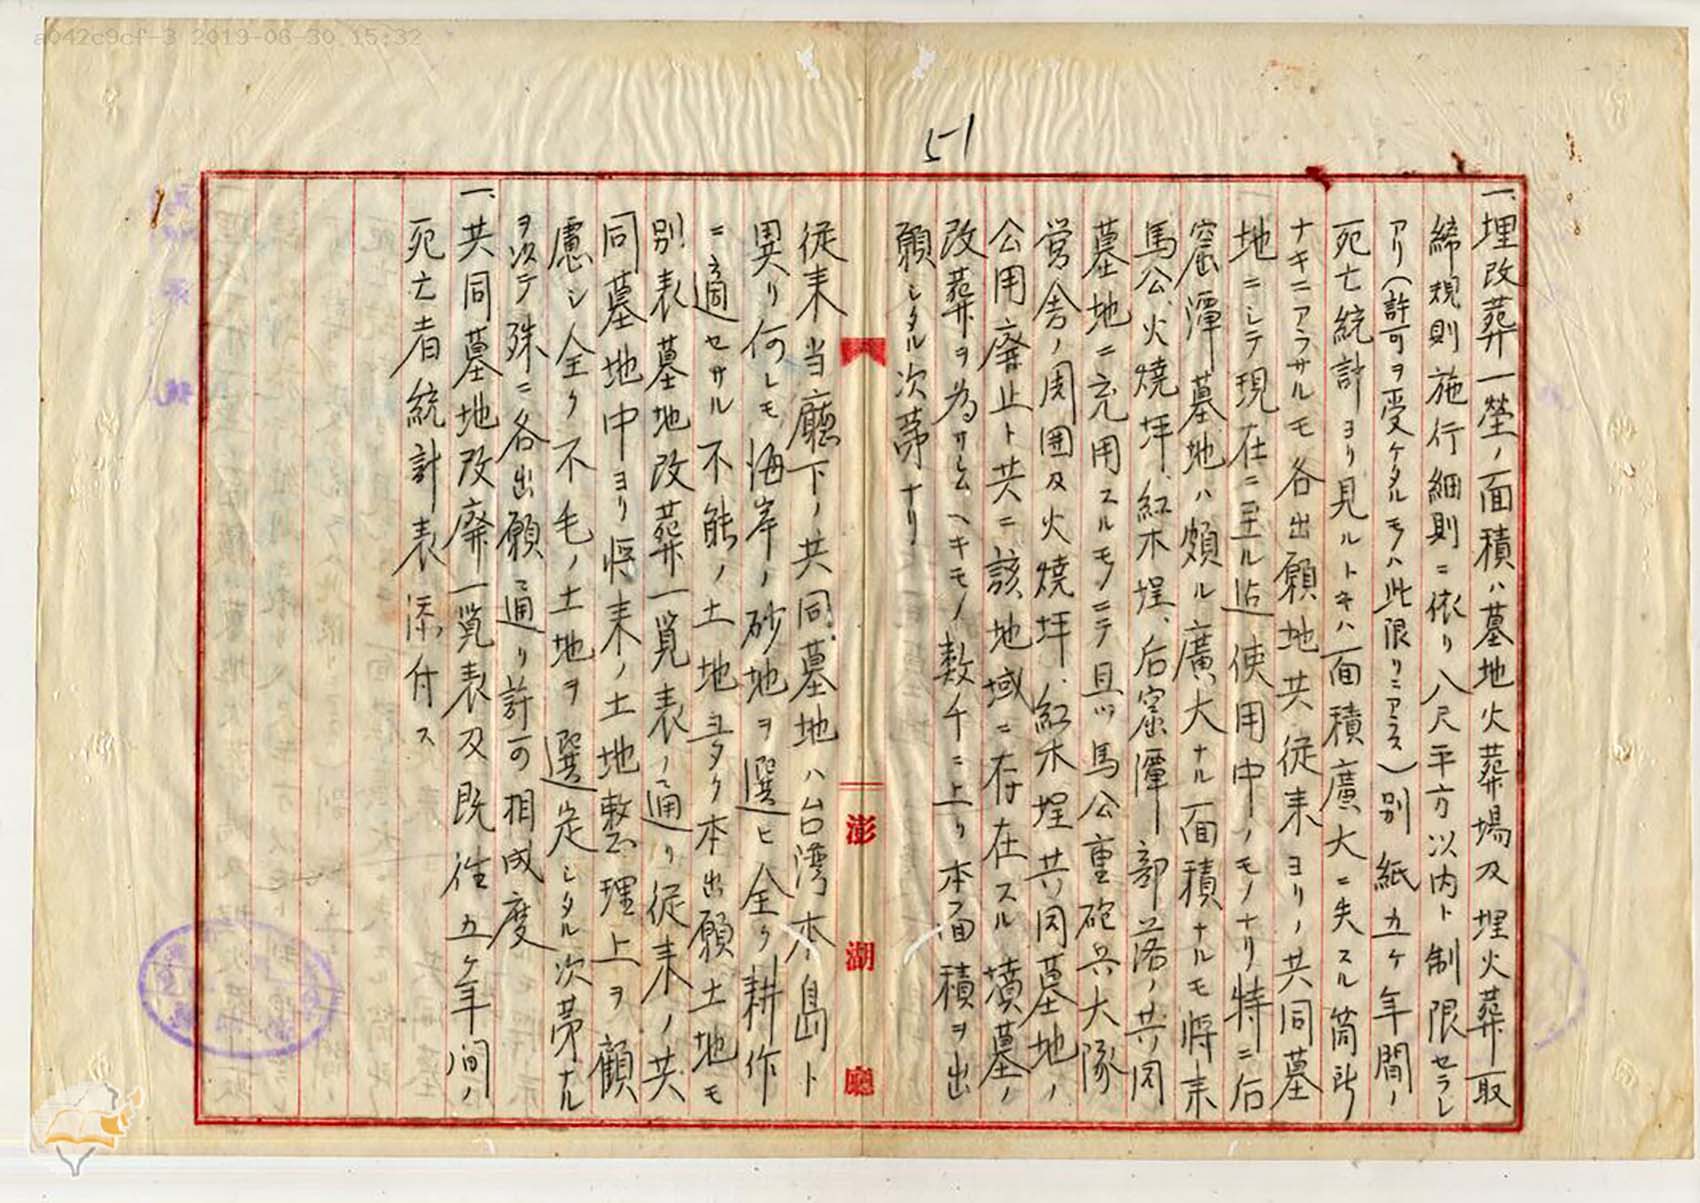 a042c9cf-3 2019-06-30 15:32
51
一、埋改葬一塋ノ面積ハ墓地火葬場及埋火葬取
締規則施行細則ニ依リ八尺平方以内ト制限セラレ
アリ(許可ヲ受ケタルモノハ此限リニアラス)別紙五ケ年間ノ
死亡統計ヨリ見ルトキハ面積廣大ニ失スル箇所
ナキニアラサルモ各出願地共従来ヨリノ共同墓
地ニシテ現在ニ至ル迄使用中ノモノナリ特ニ后
窟潭墓地ハ頗ル廣大ナル面積ナルモ将来
馬公、火燒坪、紅木埕、后窟潭部落ノ共同
墓地ニ充用スルモノニテ且ツ馬公重砲兵大隊
営舎ノ周囲及火燒坪、紅木埕共同墓地ノ
公用廃止ト共ニ該地域ニ存在スル墳墓ノ
改葬ヲ為サシムヘキモノ数千ニ上リ本面積ヲ出
願シタル次第ナリ
従来当廳下ノ共同墓地ハ台湾本島ト
異リ何レモ海岸ノ砂地ヲ選ヒ全ク耕作
ニ適セサル不能ノ土地ヨタク本出願土地モ
別表墓地改葬一覧表ノ通リ従来ノ共
同墓地中ヨリ将来ノ土地整理上ヲ顧
慮シ全ク不毛ノ土地ヲ選定シタル次第ナル
ヲ次テ殊ニ各出願通リ許可相成度
一、共同墓地改廃一覧表及既往五ケ年间ノ
死亡者統計表添付ス
澎湖廳